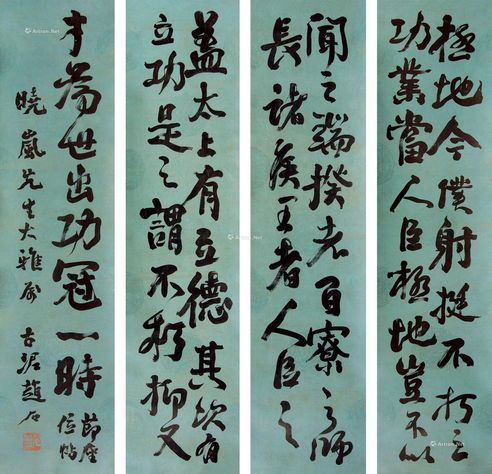 盖太上有立德其次有
立功是之謂不朽抑又
聞之端揆者百寮之師
長諸侯王者人臣之
極地今僕射挺不朽之
功業當人臣極地豈不以
才為世出功冠一時 節座位帖
曉嵐先生大雅屬
古泥趙石
Artron.Net